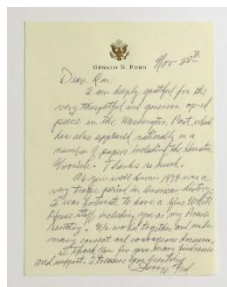 GERALD R. FORD
Nov 28th
Dear Ron:
I am deeply grateful for the
very thoughtful and generous op-ed
piece in the Washington Post, which
has also appeared nationally in a
number of papers including the Houston
Chronicle. Thanks so much.
As you well know 1974 was a
very tragic period in American history.
I was fortunate to have a fine White
House staff, including you as my Press
Secretary. We worked together and made
many correct and courageous decisions.
I thank you for your many kindnesses
and support. I treasure your friendship